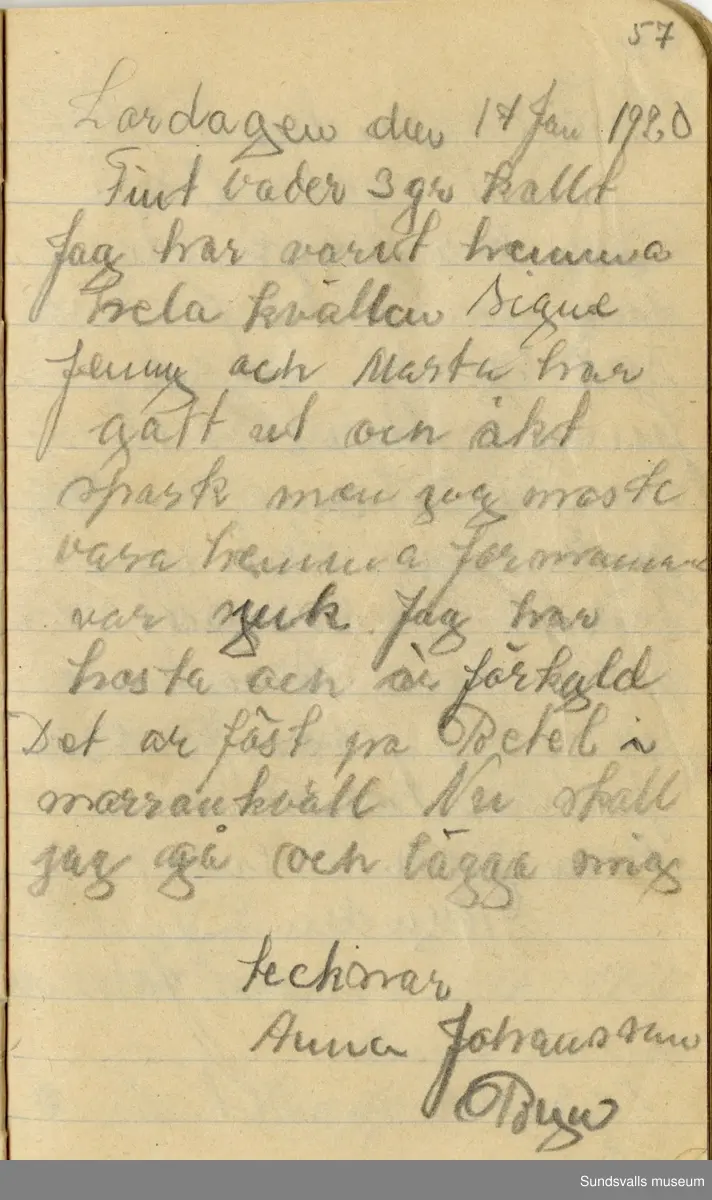 57
Lordagen den 17 Jan 1920
Fint vader 3 gr kallt
Jag har varit hemma
hela kvällen Signe
Jenny och Marta har
gått ut och åkt
spark men jag moste
vara hemma for mamma
var sjuk Jag har
hosta och är förkyld
Det ar fäst pa Betel i
morronkväll Nu skall
jag gå och lägga mig
Tecknar
Anna Johansson
Sundsvalls museum